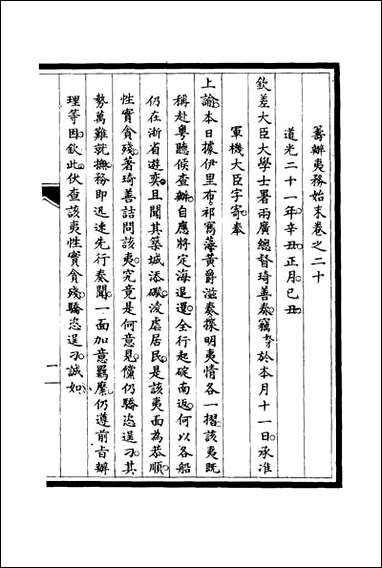 籌辦夷務始末卷之二十
道光二十一年辛丑正月己丑
欽差大臣大學士署兩廣總督琦善奏竊才於本月十一日承准
軍機大臣字寄奉
上諭本日據伊里布祁寯藻黃爵滋奏探明夷情各一摺該夷既
稱赴粵聽候查辦自應將定海退還全行起碇南返何以各船
仍在浙省遊奕且聞其築城添礮淩虐居民是該夷面為恭順
性實貪殘著琦善詰問該夷究竟是何意見儻仍驕恣逞刁其
勢萬難就撫務即迅速先行奏聞一面加意羈縻仍遵前旨辦
理等因欽此伏查該夷性實貪殘驕恣逞刁誠如
一